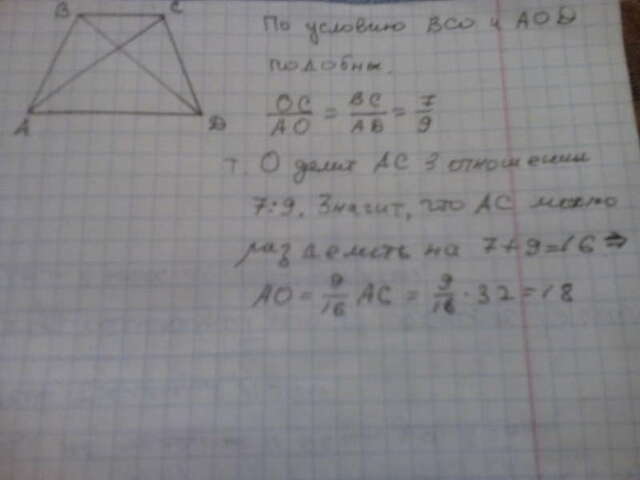 B C
A D
По условию BCO и AOD
подобны.
OC/AO = BC/AD = 7/9
т. O делит AC в отношении
7:9. Значит, что AC можно
на 7+9=16 ⇒
AO = 9/16 AC = 9/16 · 32 = 18